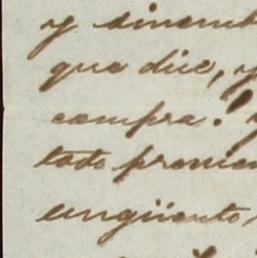 y sinemb
que dice, y
compra! y
todo provien
ungüento,